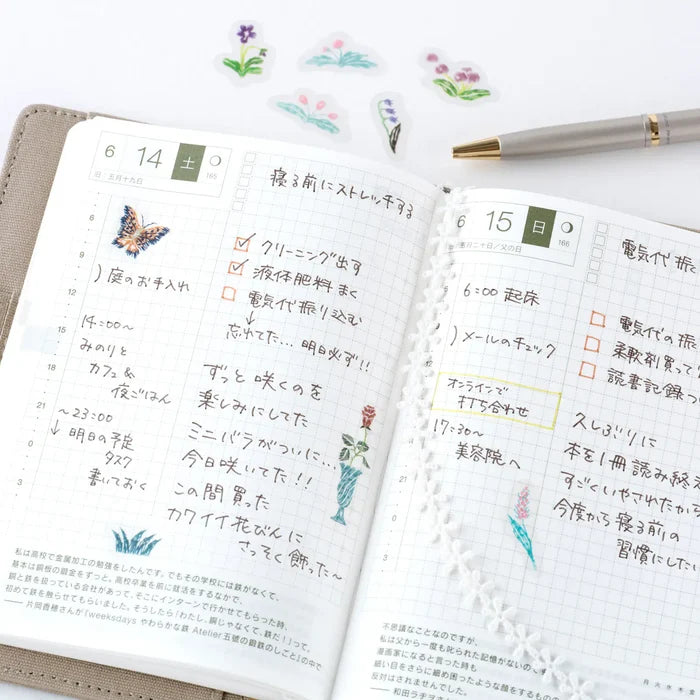 6 14 土
旧 五月十九日
165
寝る前にストレッチする
クリーニング出す
液体肥料まく
電気代振り込む
↓
忘れてた…明日必ず!!
6
9
)庭のお手入れ
12
15
14:00~
みのりと
カフェ&
夜ごはん
18
21
~23:00
↓ 明日の予定
タスク
書いておく
0
3
ずっと咲くのを
楽しみにしてた
ミニバラがついに…
今日咲いてた!!
この間買った
カワイイ花びんに
さっそく飾った~
私は高校で金属加工の勉強をしたんです。でもその学校には鉄がなくて、
基本は銅板の鍛金をずっと。高校卒業を前に就活をするなかで、
銅と鉄を扱っている会社があって、そこにインターンで行かせてもらった時、
初めて鉄を触らせてもらいました。そうしたら「わたし、銅じゃなくて、鉄だ!」って。
──片岡香穂さんが「weeksdays やわらかな鉄 Atelier五號の鋼鉄のしごと」の中で
6 15 日
五月二十日/父の日
166
電気代 振
6:00 起床
)メールのチェック
オンラインで
打ち合わせ
17:30~
美容院へ
電気代の振
柔軟剤買って
読書記録つ
久しぶりに
本を1冊 読み終え
すごくいやされたから
今度から 寝る前の
習慣にしたい
12
21
0
3
不思議なことなのですが、
私は父から一度も叱られた記憶がないのです
漫画家になると言った時も
細い目をさらに細め困ったような顔をするものの
反対はされませんでした。
──和田ラヂヲさ
月 火 水 木